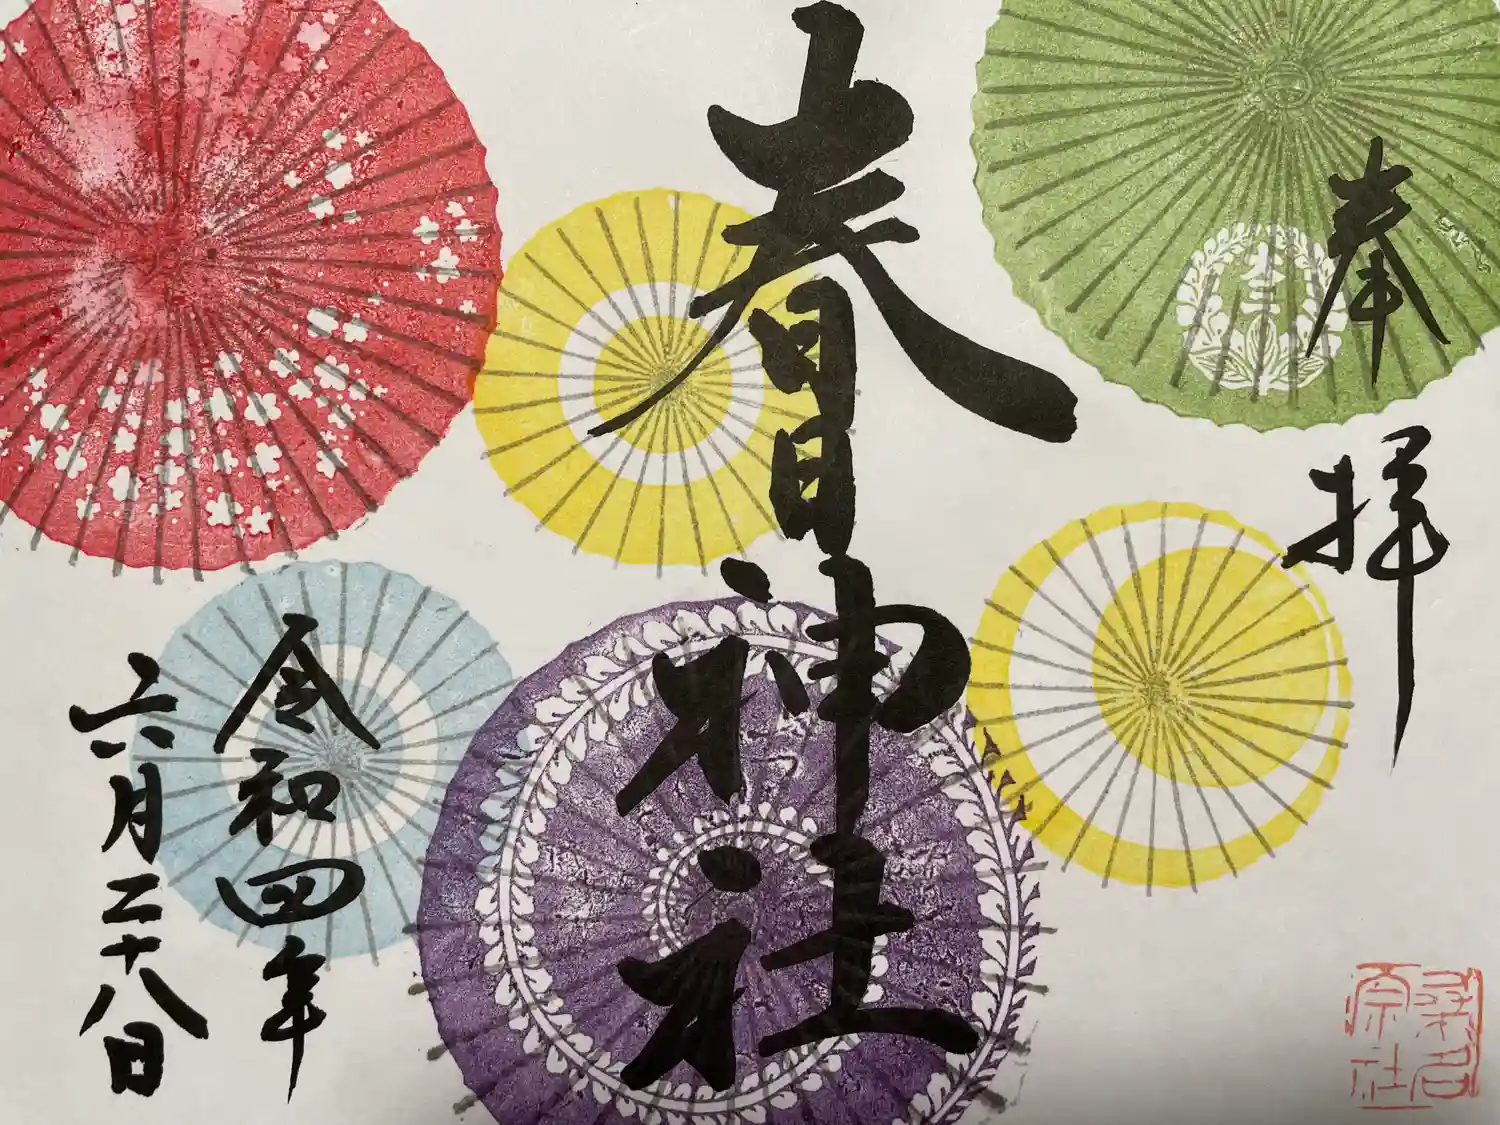 奉拝
春日神社
令和四年
六月二十八日
桑名
宗社